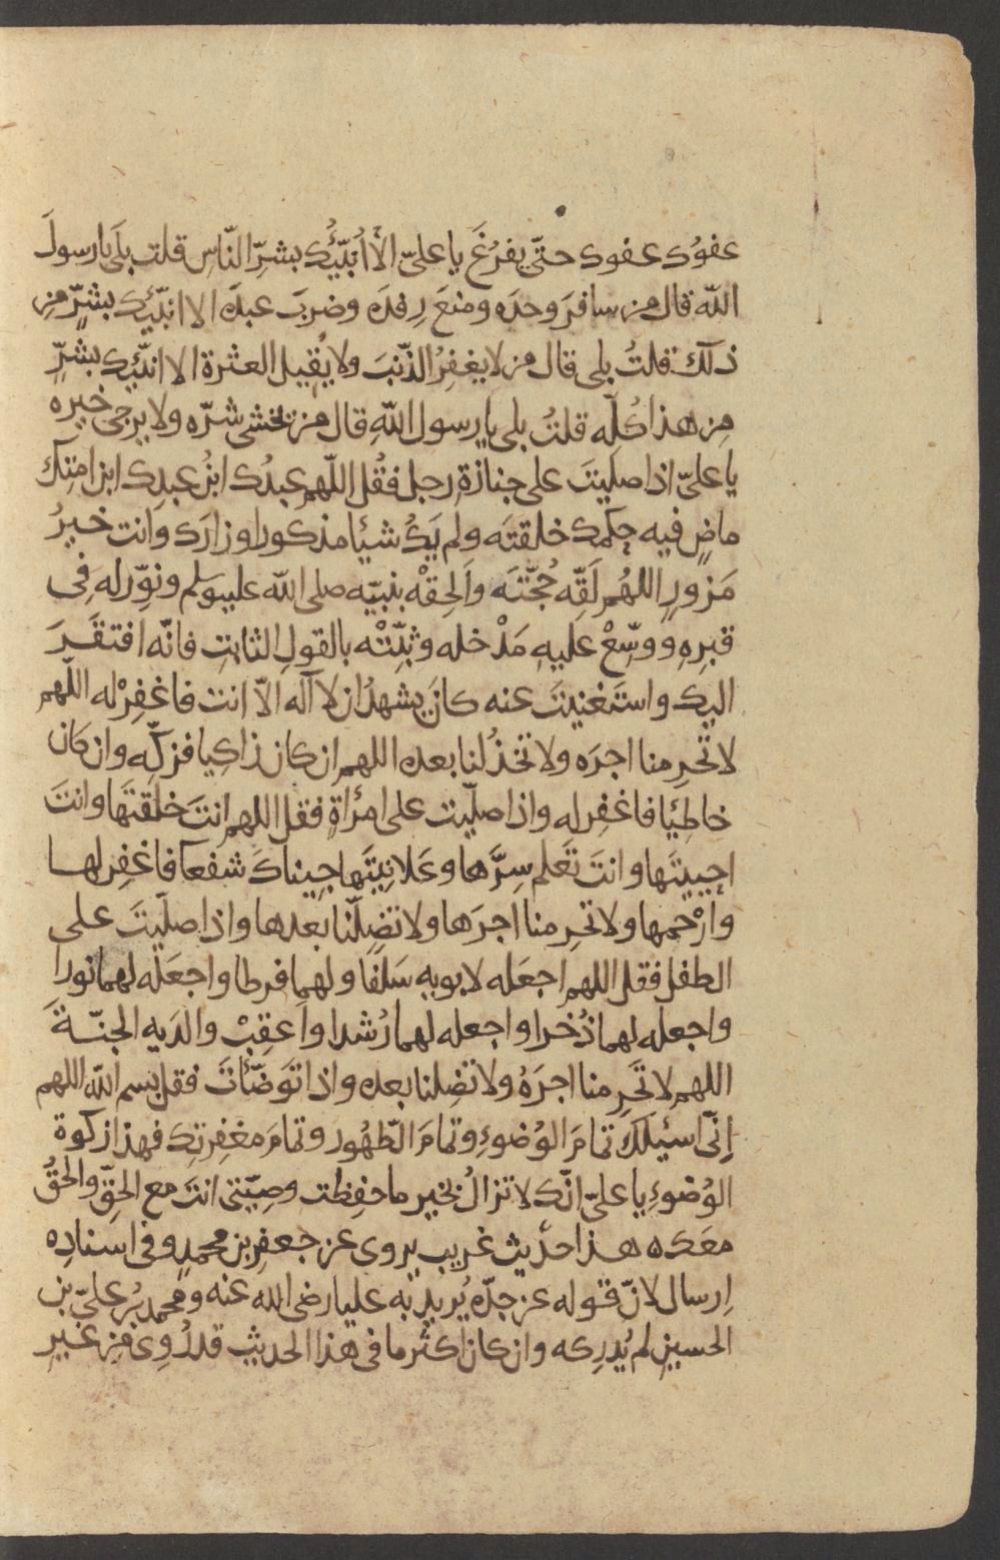 عفوُك عفوك حتّى يفرُغَ يا عليّ الَا اُنَبّئُك بشرِّ النّاس قلت بلَى يا رسولَ
الله قال من سافرَ وحدَه ومنعَ رِفدَه وضربَ عبدَه الا انبّئك بشرٍّ من
ذلك قلتُ بلى قال من لا يغفِرُ الذّنبَ ولا يُقيل العثرة الا انبّئك بشرٍّ
مِن هذا كُلّه قلتُ بلى يا رسول اللهِ قال من يُخشى شرّه ولا يرجى خيره
يا عليّ اذا صليتَ على جنازة رجل فقُل اللّهم عبدُك ابنُ عبدِك ابن امتِك
ماضٍ فيه حكمك خلقتَه ولم يَكُ شيئا مذكورا وزارَك وانت خيرُ
مَزورٍ اللهُم لَقِّه حُجّتَه واَلحِقْه بنبيّه صلى الله عليه وسلم ونوِّر له فِى
قبرِهِ ووسِّعْ عليهِ مَدْخله وثبِّتْه بالقولِ الثابتِ فانّه افتقَرَ
اليك واستَغنيتَ عنه كانَ يشهدُ ان لا اله الاّ انت فاغفِرْ له اللّهم
لا تَحرِمنا اجرَه ولا تخذُلنا بعده اللهم ان كان زاكِيا فزكّه وان كان
خاطِئًا فاغفِر له واذا صلّيت على امرأةٍ فقل اللهم انتَ خلَقتَها وانتَ
احييتَها وانتَ تَعلم سِرَّها وعَلانِيَتَها جيناك شفعآ فاغفِر لها
وارْحمها ولا تحرِمنا اجرَها ولا تضِلّنا بعدها واذا صلّيتَ على
الطفل فقل اللهم اجعَله لابويه سَلَفًا ولهما فرطا واجعَله لهما نورا
واجعله لهما ذُخرا واجعله لهما رُشدا واَعقِبْ والدَيه الجنّةَ
اللهم لا تَحرِمنا اجرَهُ ولا تضِلنا بعده واذا توَضّأتَ فقل بسم الله اللهم
اِنّى اسئلك تمامَ الوُضوءِ وتمامَ الطّهُور وتمامَ مغفِرتِك فهذا زكوة
الوُضوءِ يا عليّ انّك لا تزالُ بخير ما حفِظت وصِيّتى انتَ مع الحقّ والحقُّ
معَك ه هذا حدَيث غريب يروى عن جعفرِ بن محمدٍ وفى اسنادِه
اِرسال لانّ قوله عن جدّه يُريد به عليا رضى الله عنه ومحمد بنُ علىّ بن
الحسين لم يُدرِكه وان كان اكثَر ما فى هذا الحديثِ قد رُوِى مِن غيرِ